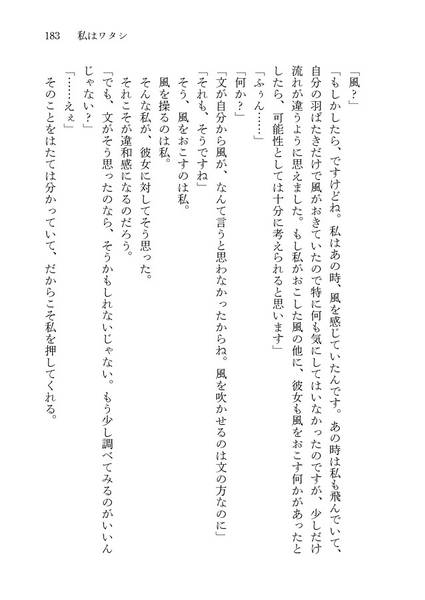 183　私はワタシ
「風？」
「もしかしたら、ですけどね。私はあの時、風を感じていたんです。あの時は私も飛んでいて、
自分の羽ばたきだけで風がおきていたので特に何も気にしてはいなかったのですが、少しだけ
流れが違うように思えました。もし私がおこした風の他に、彼女も風をおこす何かがあったと
したら、可能性としては十分に考えられると思います」
「ふぅん……」
「何か？」
「文が自分から風が、なんて言うと思わなかったからね。風を吹かせるのは文の方なのに」
「それも、そうですね」
そう、風をおこすのは私。
風を操るのは私。
そんな私が、彼女に対してそう思った。
それこそが違和感になるのだろう。
「でも、文がそう思ったのなら、そうかもしれないじゃない。もう少し調べてみるのがいいん
じゃない？」
「……えぇ」
そのことをはたては分かっていて、だからこそ私を押してくれる。